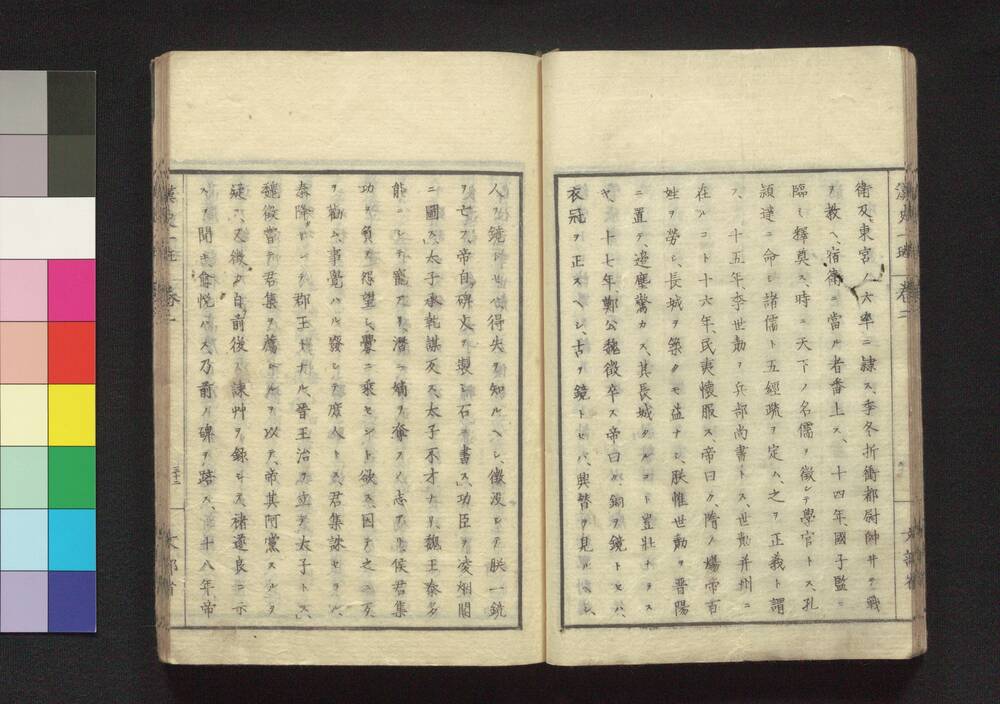 衛及、東宮ノ六率ニ隷ス、季冬折衝都尉帥サヰテ戰
ヲ教ヘ、宿衞ニ當ル者番上ス、十四年、國子監ニ
臨ミ釋奠ス、時ニ天下ノ名儒ヲ徴シテ學官トス、孔
穎達ニ命シ諸儒ト五經疏ヲ定ム、之ヲ正義ト謂
フ、十五年、李世勣ヲ兵部尚書トス、世勣并州ニ
在ルコト十六年、民夷懷服ス、帝曰ク、隋ノ煬帝百
姓ヲ勞シ、長城ヲ築クモ益ナシ、朕惟世勣ヲ晋陽
ニ置テ、邉塵驚カス、其長城タルコト豈壯ナラス
ヤ、十七年、鄭公魏徴卒ス、帝曰ク、銅ヲ鏡トセハ、
衣冠ヲ正スヘシ、古ヲ鏡トセハ、興替ヲ見ルヘシ、
人ヲ鏡トセハ得失ヲ知ルヘシ、徴没シテ朕一鏡
ヲ亡フ、帝自碑文ヲ製シ石ニ書ス、功臣ヲ凌烟閣
ニ圖ス、太子承乾謀反ス、太子不才ナリ、魏王泰多
能ニシテ寵アリ、潛ニ嫡ヲ奪フノ志アリ、侯君集
功ヲ負テ怨望シ、釁ニ乘セント欲ス、因テ之ニ反
ヲ勸ム、事覺ハル、廢シテ庶人トス、君集誅セラル、
泰降シテ郡王トナル、晋王治ヲ立テ太子トス、
魏徴嘗テ君集ヲ薦ムルヲ以テ、帝其阿黨スルヲ
疑フ、又徴カ自前後ノ諫艸ヲ録シテ、褚遂良ニ示
スヲ聞キ、愈悦ハス、乃前ノ碑ヲ踣ス、十八年、帝
漢史一班 卷二
文部省